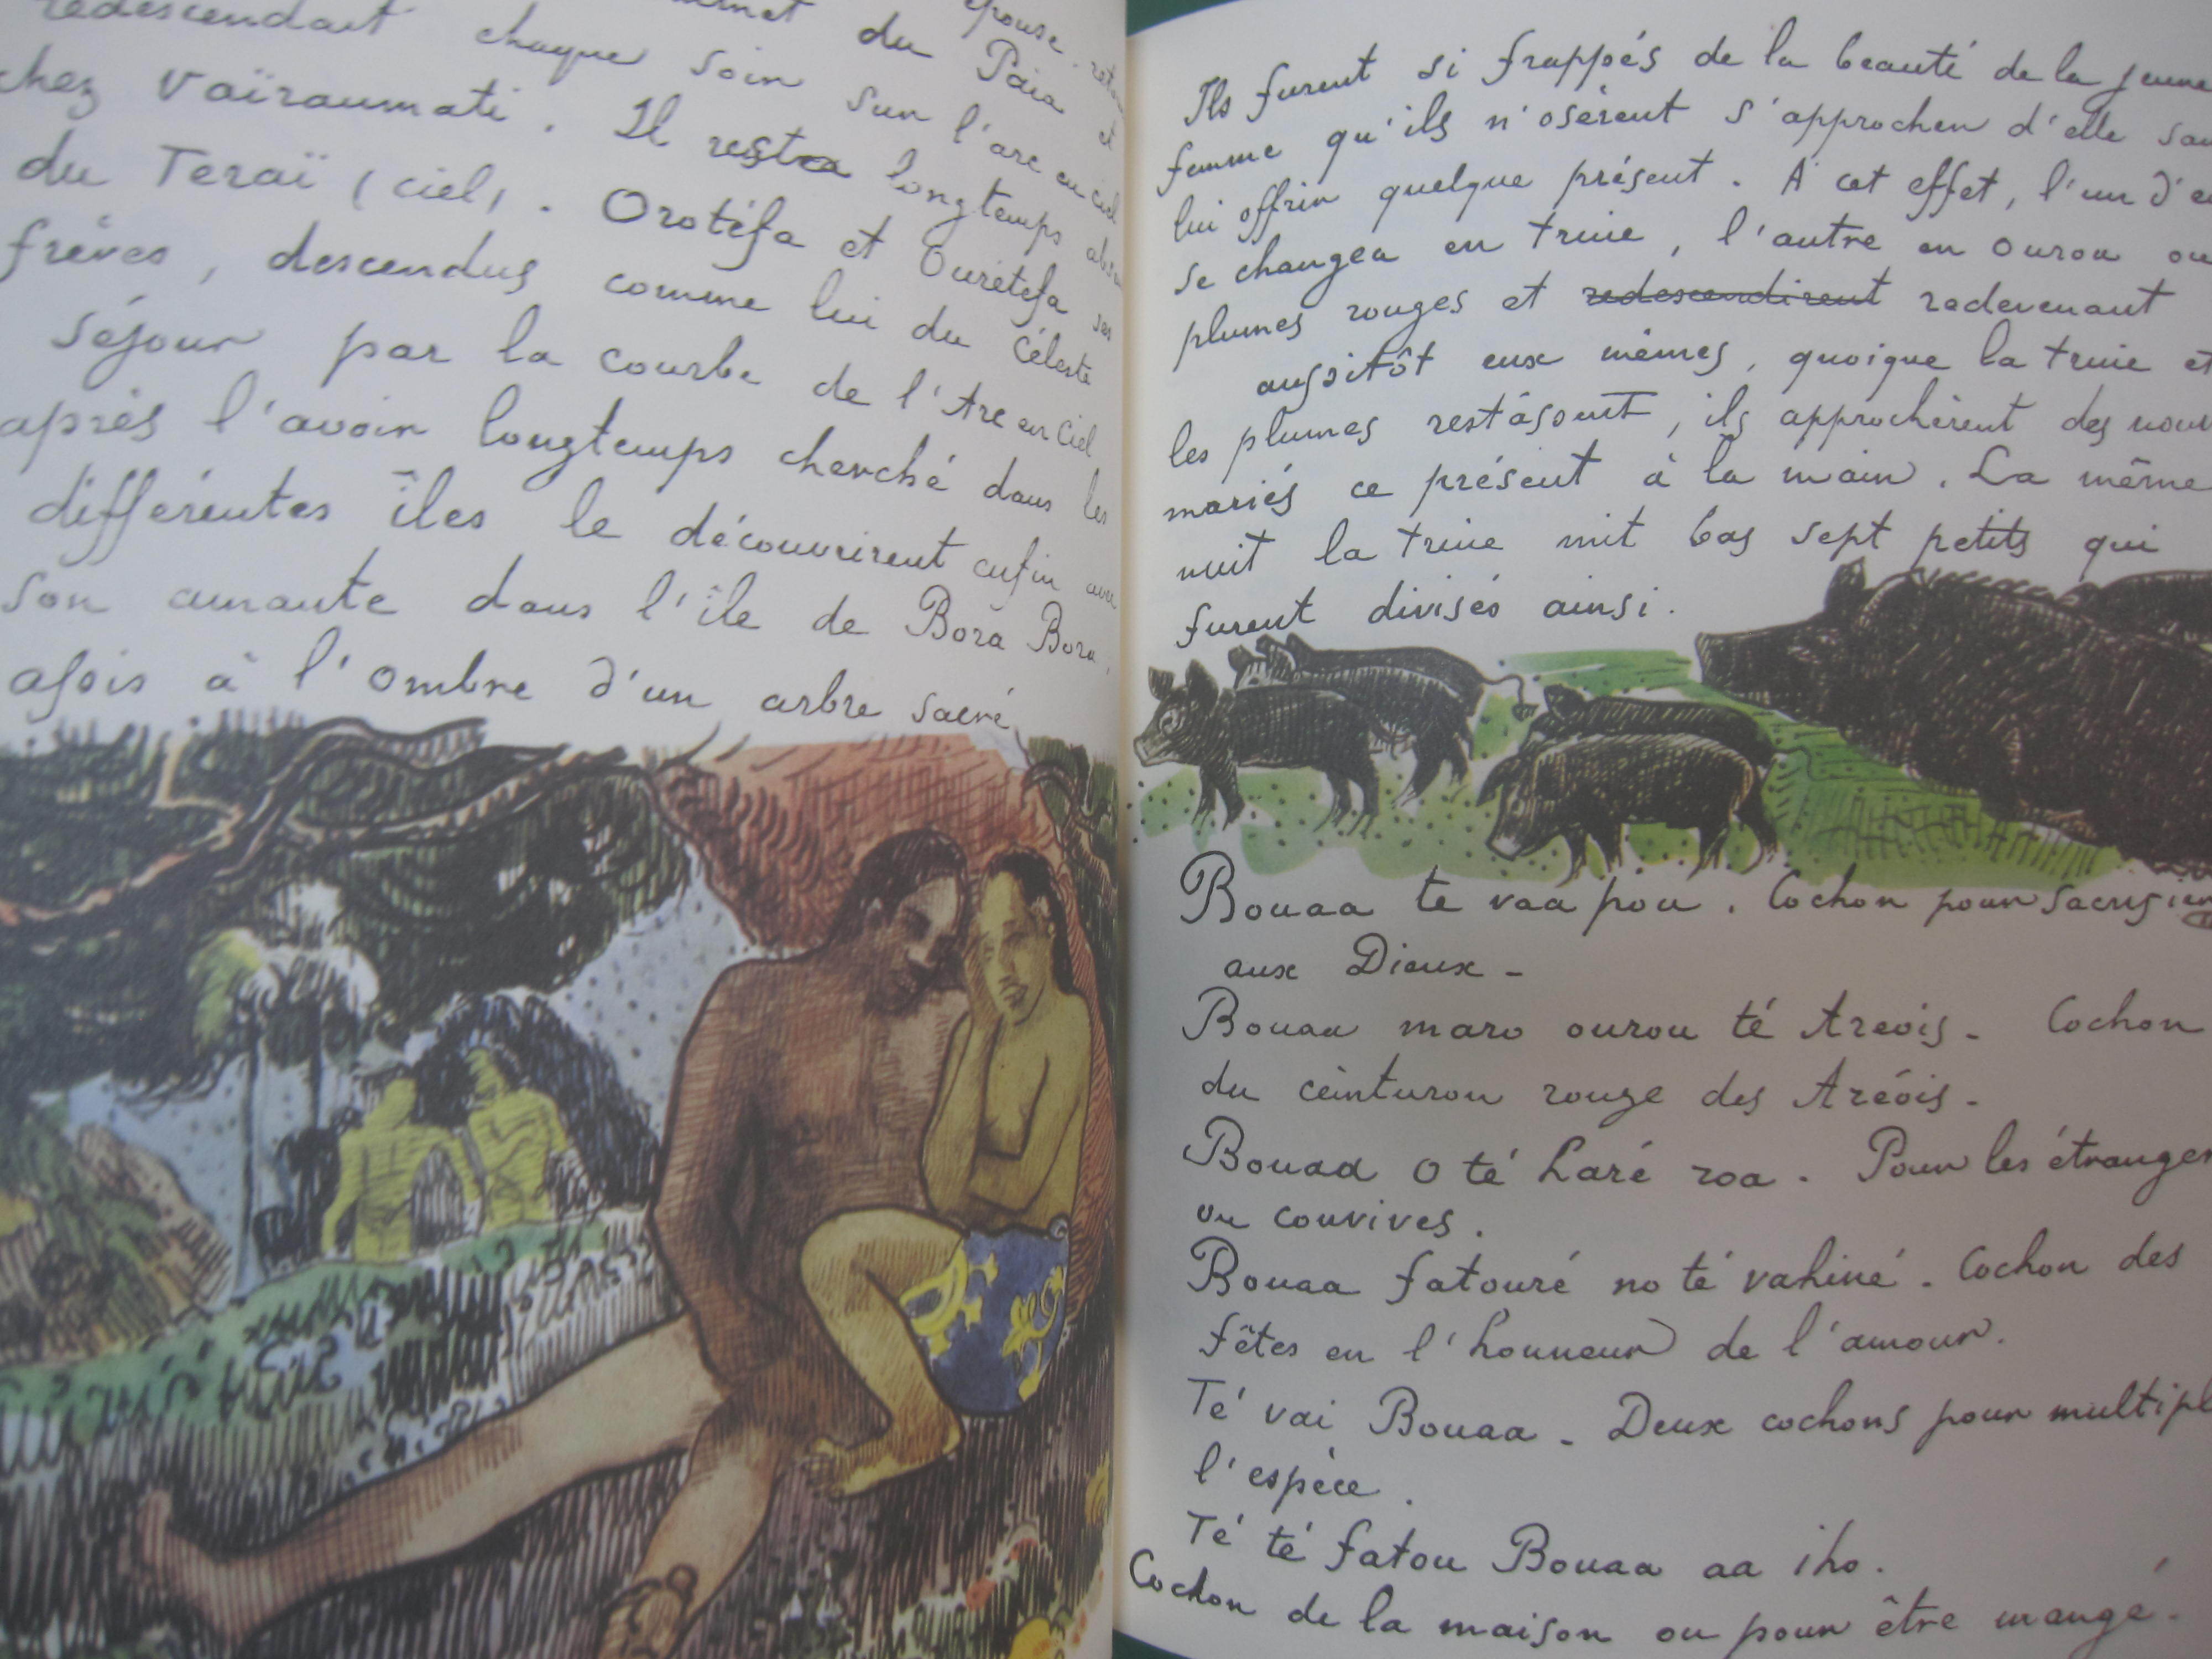 épouse. 
du Paia et
redescendait chaque soir sur l'arc en ciel
chez Vaïraumati. Il resta longtemps
du Teraï (ciel). Orotéfa et Ourétéfa ses
frères, descendus comme lui du Céleste
séjour par la courbe de l'Arc en Ciel
après l'avoir longtemps cherché dans les
différentes îles le découvrirent enfin avec
son amante dans l'île de Bora Bora,
assis à l'ombre d'un arbre sacré
Ils furent si frappés de la beauté de la jeune
femme qu'ils n'osèrent s'approcher d'elle
lui offrir quelque présent. A cet effet, l'un d'
se changea en truie, l'autre en ourou ou
plumes rouges et redescendirent redevenant
aussitôt eux mêmes, quoique la truie et
les plumes restâssent, ils approchèrent des
mariés ce présent à la main. La même
nuit la truie mit bas sept petits qui
furent divisés ainsi.
Bouaa te vaa pou. Cochon pour sacrifier
aux Dieux -
Bouaa maro ourou té Areois. Cochon
du ceinturon rouge des Aréois.
Bouaa O té haré roa. Pour les étrangers
ou convives.
Bouaa fatouré no té vahiné. Cochon des
fêtes en l'honneur de l'amour.
Té vai Bouaa. Deux cochons pour multipl
l'espèce.
Té té fatou Bouaa aa iho.
Cochon de la maison ou pour être mangé.